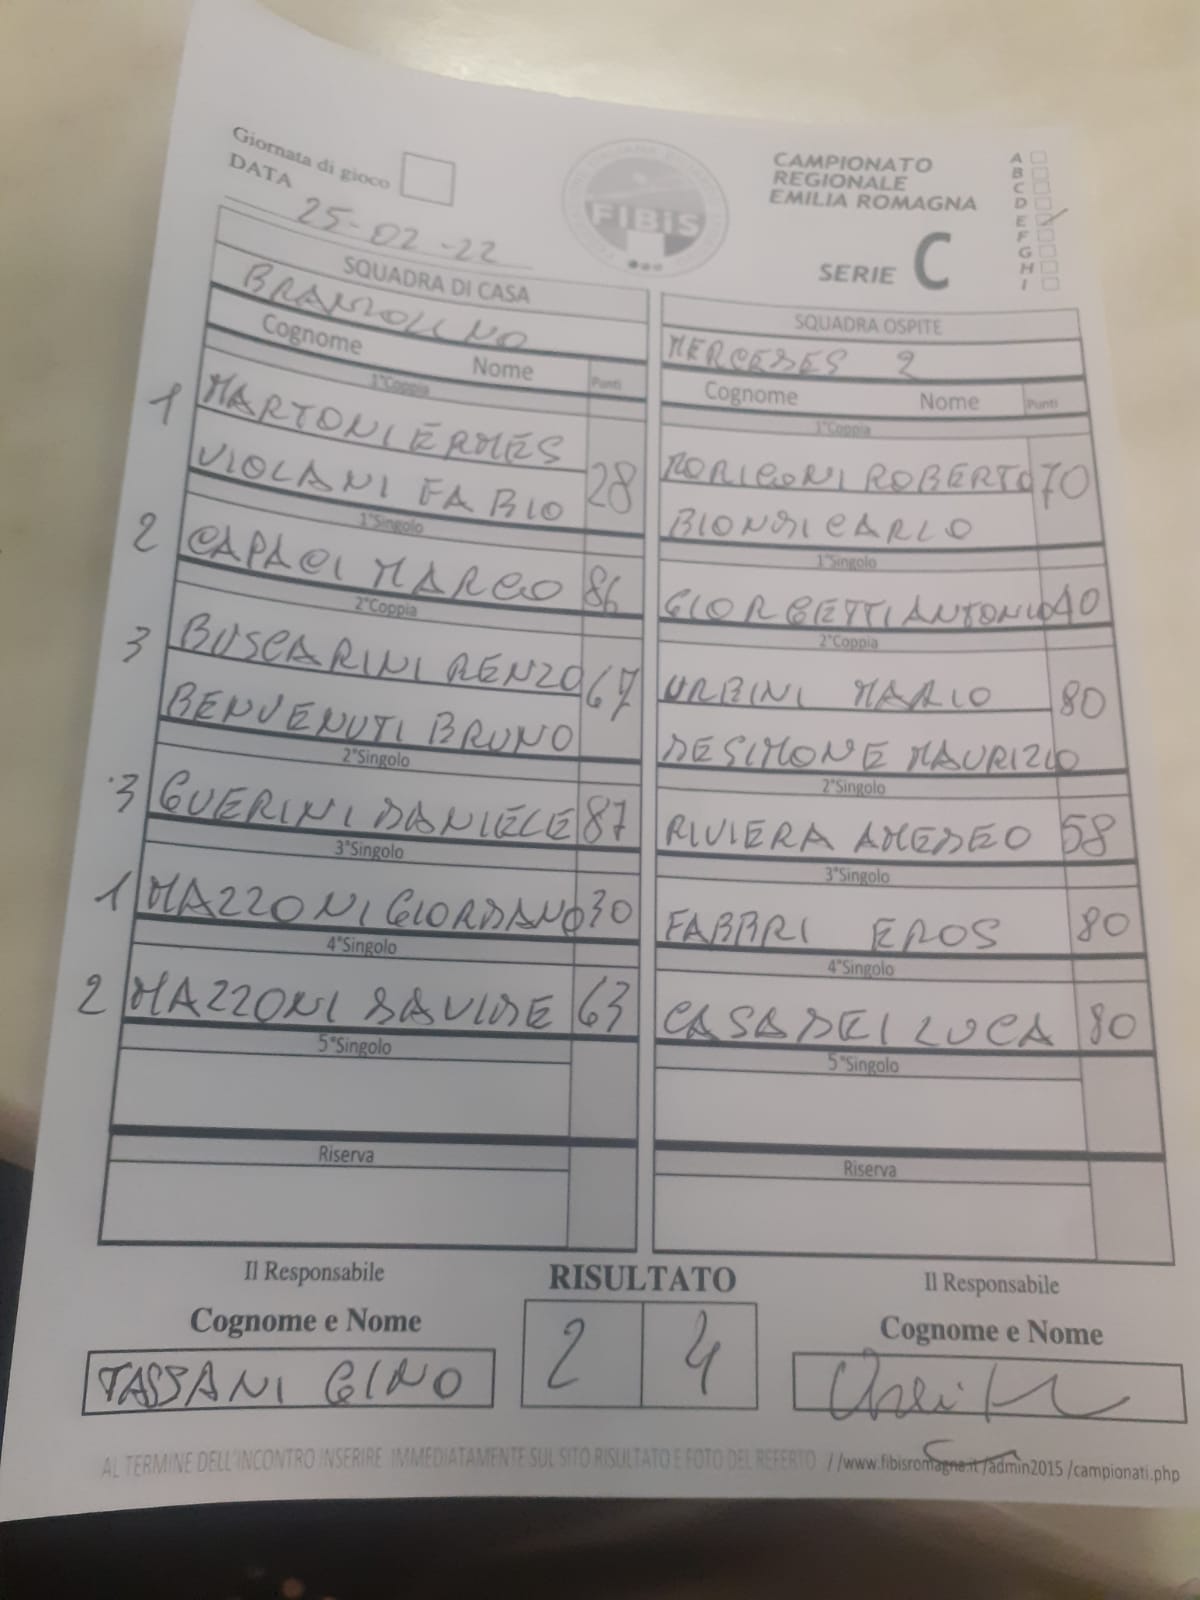 Giornata di gioco
DATA
25-02-22
FIBiS
CAMPIONATO
REGIONALE
EMILIA ROMAGNA
SERIE C
A
B
C
D
E
F
G
H
I
SQUADRA DI CASA
BRANZOLINO
Cognome Nome Punti
1°Coppia
1 MARTONI ERMES
VIOLANI FABIO 28
1°Singolo
2 CAPACI MARCO 86
2°Coppia
3 BUSCARINI RENZO 67
BENVENUTI BRUNO
2°Singolo
3 GUERINI DANIELE 87
3°Singolo
1 MAZZONI GIORDANO 30
4°Singolo
2 MAZZONI DAVIDE 63
5°Singolo
Riserva
SQUADRA OSPITE
MERCEDES 2
Cognome Nome Punti
1°Coppia
MORIGONI ROBERTO 70
BIONDI CARLO
1°Singolo
GIORGETTI ANTONIO 40
2°Coppia
URBINI MARIO 80
DESIMONE MAURIZIO
2°Singolo
RIVIERA AMEDEO 58
3°Singolo
FABBRI EROS 80
4°Singolo
CASADEI LUCA 80
5°Singolo
Riserva
Il Responsabile
Cognome e Nome
TASSANI GINO
RISULTATO
2 4
Il Responsabile
Cognome e Nome
AL TERMINE DELL'INCONTRO INSERIRE IMMEDIATAMENTE SUL SITO RISULTATO E FOTO DEL REFERTO //www.fibisromagna.it /admin2015 /campionati.php